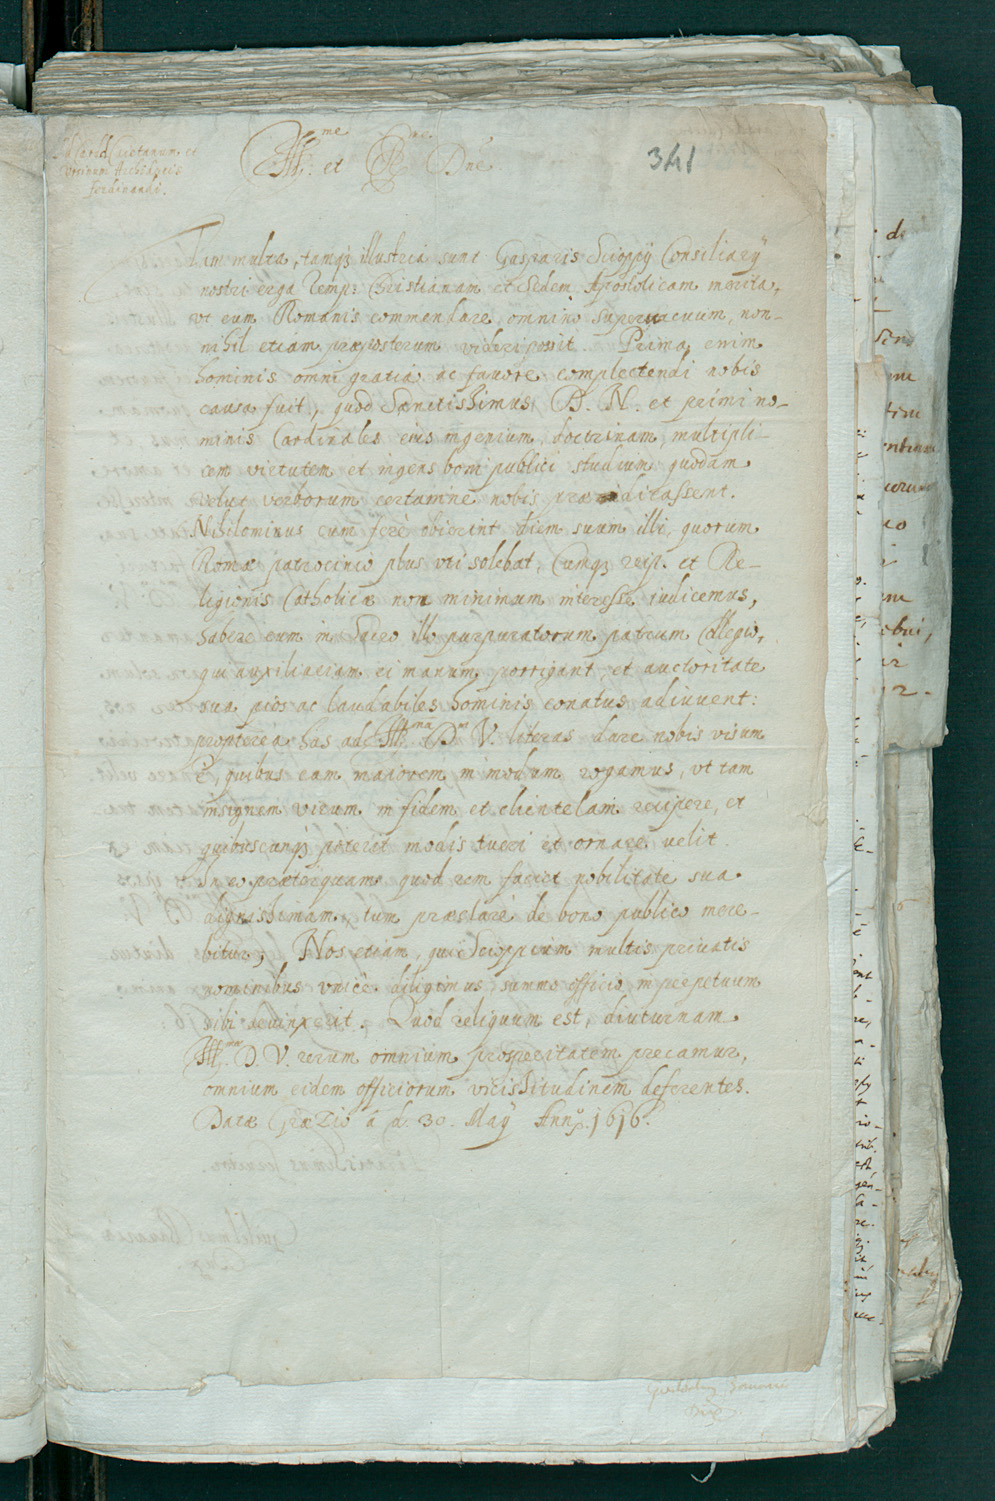 Ill.me et R.me Dne
341
Ursinum Archiducis
Ferdinandi.
Tam multa, tamq; illustria sunt Gasparis Scioppij Consiliarij
nostri erga Remp: Christianam et Sedem Apostolicam merita,
vt eum Romanis commendare, omnino superuacuum, non-
nihil etiam præposterum videri possit. Prima enim
hominis omni gratia ac fauore complectendi nobis
causa fuit, quod Sanctissimus D. N. et primi no-
minis Cardinales eius ingenium, doctrinam, multipli-
cem virtutem et ingens boni publici studium quodam
velut verborum certamine nobis prædicassent.
Nihilominus cum ferè obierint diem suum illi, quorum
Romæ patrocinio plus vti solebat, Cumq; reip. et Re-
ligionis Catholicæ non minimum interesse iudicemus,
habere eum in Sacro illo purpuratorum patrum Collegio,
qui auxiliariam ei manum porrigant, et auctoritate
sua pios ac laudabiles hominis conatus adiuuent:
propterea has ad Ill.mam D. V. literas dare nobis visum
ē, quibus eam maiorem in modum rogamus, vt tam
insignem virum in fidem et clientelam recipere, et
quibuscunq; poterit modis tueri et ornare velit.
In eo præterquam quod rem faciet nobilitate sua
dignissimam, tum præclarè de bono publico mere-
bitur, Nos etiam, qui Scioppium multis priuatis
nominibus vnicè diligimus, summo officio in perpetuum
sibi deuinxerit. Quod reliquum est, diuturnam
Ill.mæ D. V. rerum omnium prosperitatem precamur,
omnium eidem officiorum vicissitudinem deferentes.
Datæ Græzio á d. 30. Maij Anno. 1616.